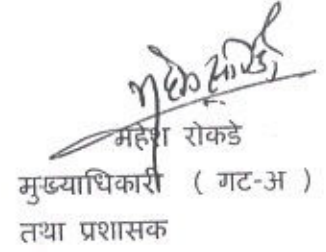 महेश रोकडे
मुख्याधिकारी ( गट-अ )
तथा प्रशासक